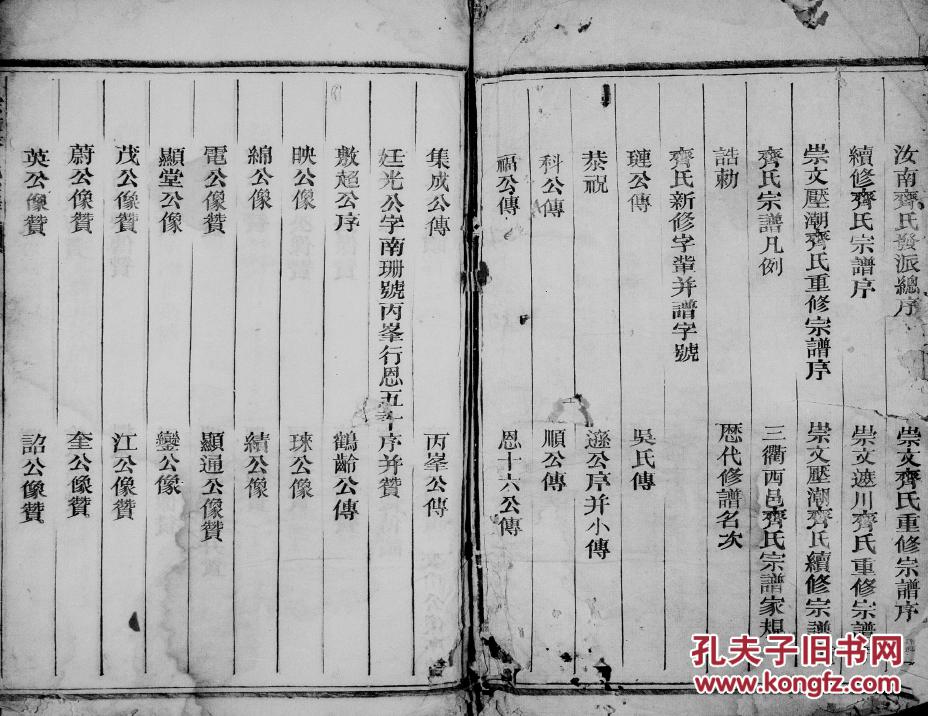 汝南齊氏發派總序 崇文齊氏重修宗譜序
續修齊氏宗譜序 崇文遊川齊氏重修宗譜
崇文壓潮齊氏重修宗譜序 崇文壓潮齊氏續修宗譜
齊氏宗譜凡例 三衢西邑齊氏宗譜家規
誥勅 歷代修譜名次
齊氏新修字輩并譜字號
璉公傳 吳氏傳
恭祝 公序并小傳
科公傳 順公傳
福公傳 恩十六公傳
集成公傳 丙峯公傳
廷光公字南珊號丙峯行恩五十序并贊
敷超公序 鶴齡公傳
映公像 琜公像
綿公像 績公像
電公像贊 顯通公像贊
顯堂公像 鑾公像
茂公像贊 江公像贊
蔚公像贊 奎公像贊
英公像贊 詔公像贊
孔夫子旧书网
www.kongfz.com